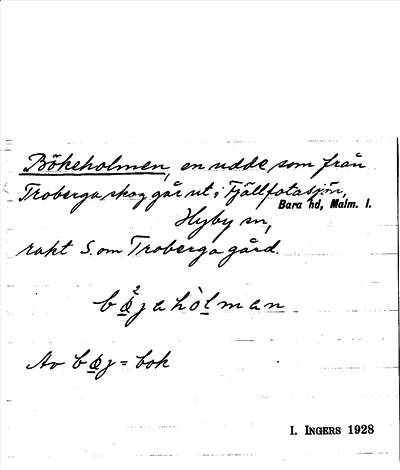 Bökeholmen, en udde som från
Troberga skog går ut i Fjällfotasjön,
Bara hd, Malm. l.
Hyby sn,
rakt S. om Troberga gård.
bø̱²jahòlman
Av bø̱j = bok
I. INGERS 1928